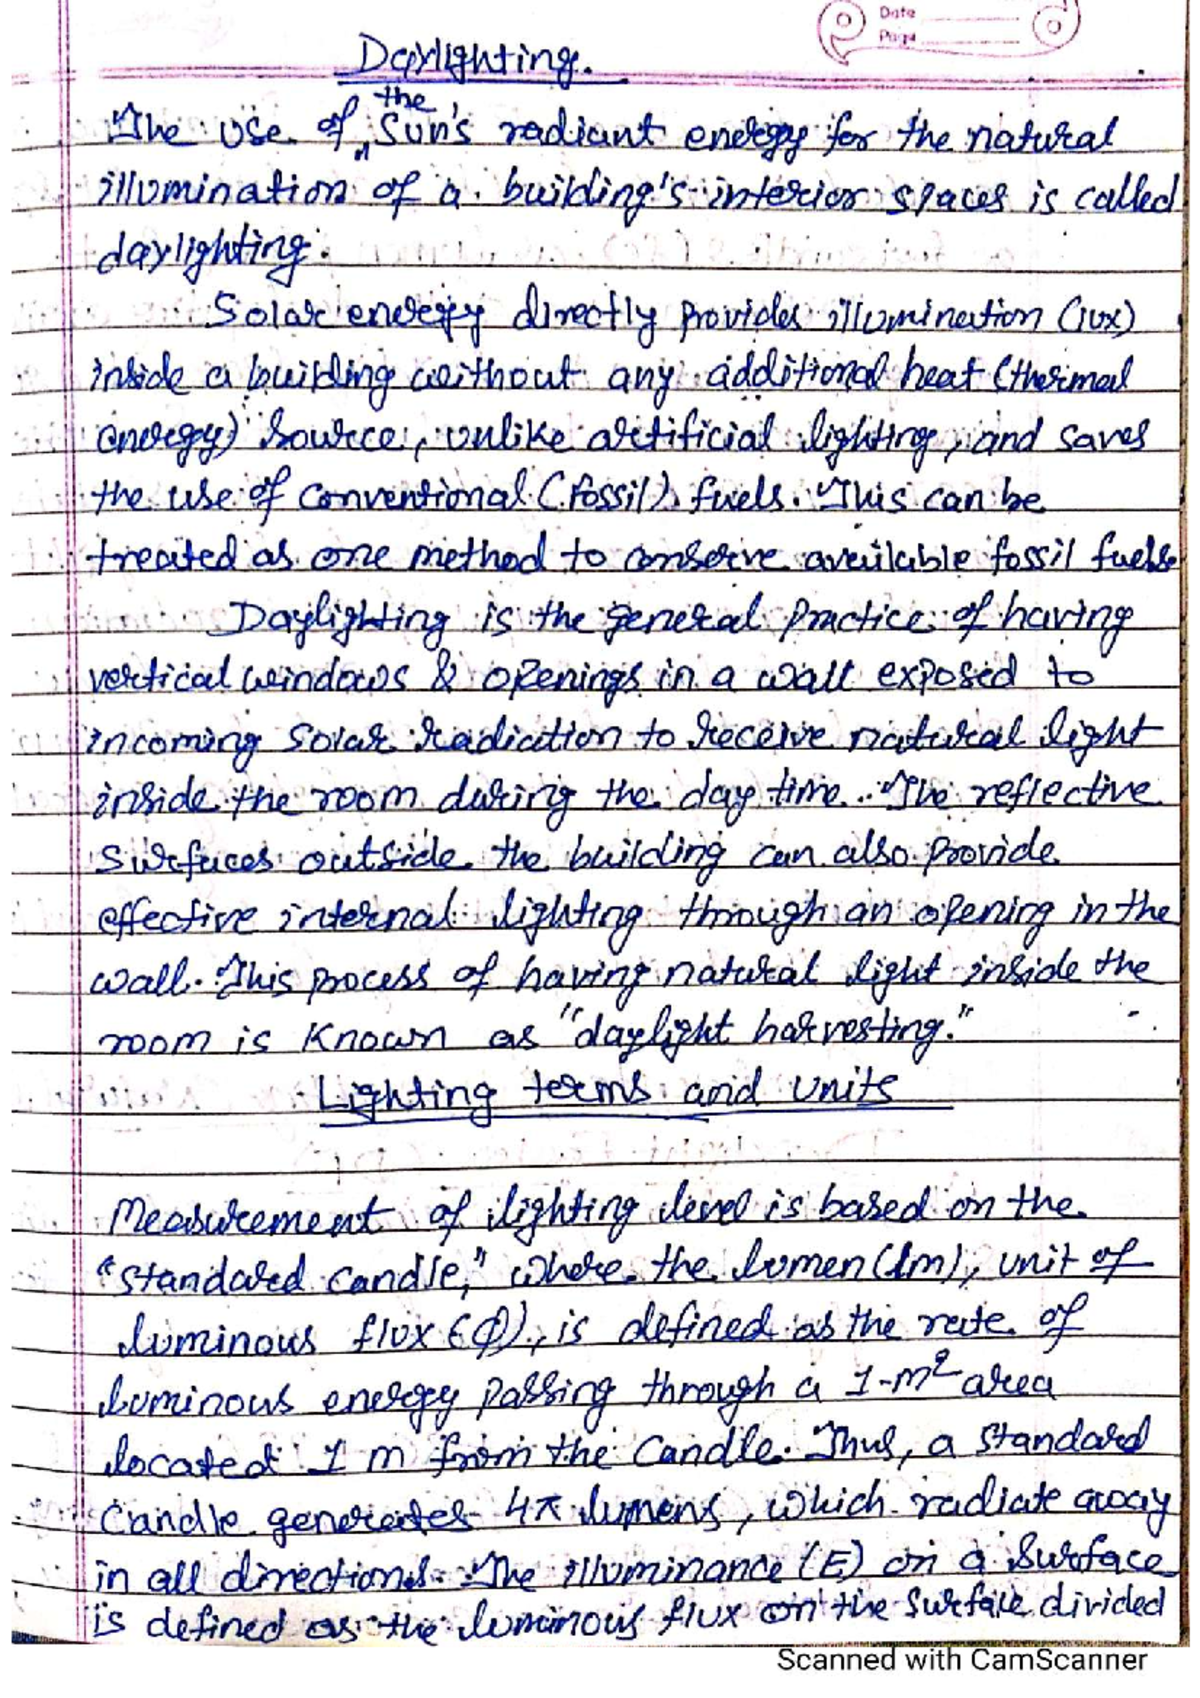 Date
Page
Daylighting.
The use of the Sun's radiant energy for the natural
illumination of a building's interior spaces is called
daylighting.
Solar energy directly provides illumination (lux)
inside a building without any additional heat (thermal
energy) source, unlike artificial lighting, and saves
the use of conventional (fossil) fuels. This can be
treated as one method to conserve available fossil fuels
Daylighting is the general practice of having
vertical windows & openings in a wall exposed to
incoming solar radiation to receive natural light
inside the room during the day time. The reflective
surfaces outside the building can also provide
effective internal lighting through an opening in the
wall. This process of having natural light inside the
room is known as "daylight harvesting."
Lighting terms and units
Measurement of lighting level is based on the
"standard candle," where the lumen (lm), unit of
luminous flux (ϕ), is defined as the rate of
luminous energy passing through a 1-m² area
located 1 m from the candle. Thus, a standard
Candle generates 4π lumens, which radiate away
in all directions. The illuminance (E) on a surface
is defined as the luminous flux on the surface divided
Scanned with CamScanner